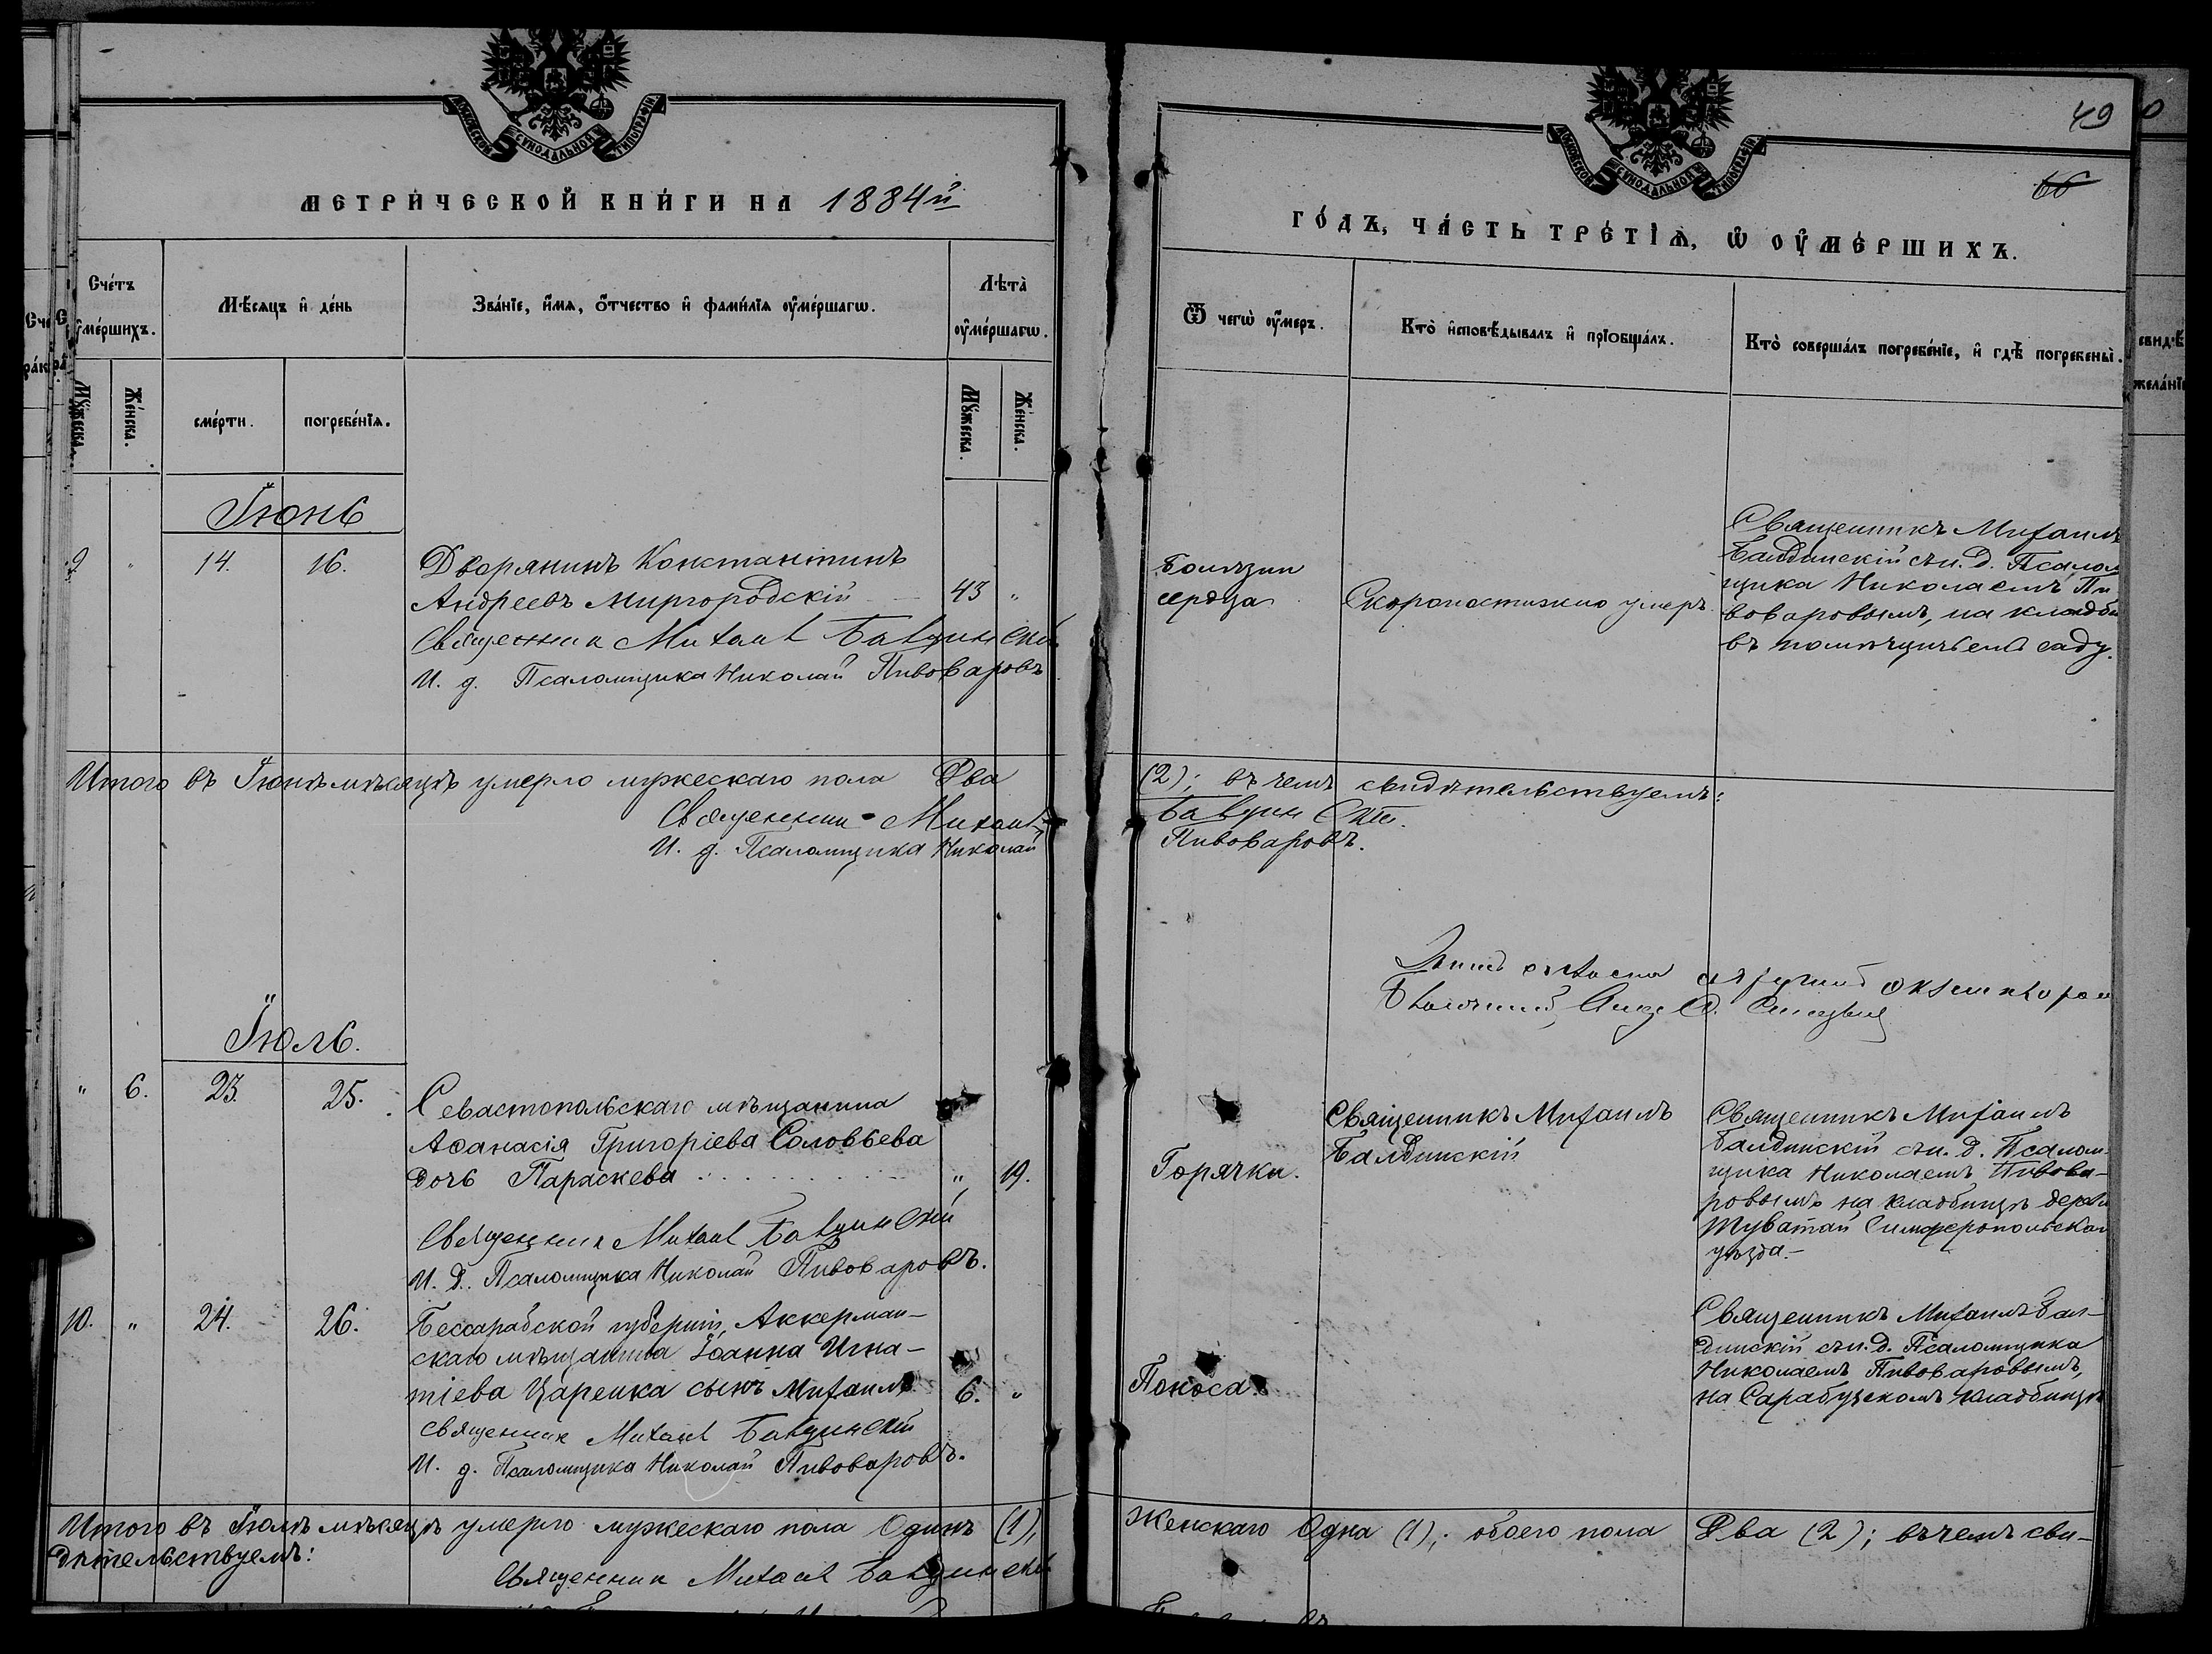 МОСКОВСКОЙ СѴНОДАЛЬНОЙ ТИПОГРАФІИ
МЕТРИ́ЧЕСКОЙ КНИ́ГИ НА 1884й
Сче́тъ ᲂу҆ме́ршихъ.
Мѣ́сяцъ и҆ де́нь
Зва́нїе, и҆́мѧ, ѻ҆́тчество и҆ фами́лїѧ ᲂу҆ме́ршагѡ.
Лѣта̀ ᲂу҆ме́ршагѡ.
Мꙋ́жеска.
Же́нска.
сме́рти.
погребе́нїѧ.
Мꙋ́жеска.
Же́нска.
Іюнь
9. " 14. 16. Дворянинъ Константинъ
Андреевъ Миргородскій 43 "
Священник Михаил Балдинскій
И. д. Псаломщика Николай Пивоваровъ
Итого въ Іюнѣ мѣсяцѣ умерло мужескаго пола Два
Священник Михаил
И. д. Псаломщика Николай
Іюль.
" 6. 23. 25. Севастопольскаго мѣщанина
Аѳанасія Григоріева Соловьева
дочь Параскева " 19.
Священник Михаил Балдинскій
И. д. Псаломщика Николай Пивоваровъ.
10. " 24. 26. Бессарабской губерніи, Аккерман-
скаго мѣщанина Іоанна Игна-
тіева Царенка сынъ Михаилъ 6. "
Священник Михаил Балдинскій
И. д. Псаломщика Николай Пивоваровъ.
Итого въ Іюлѣ мѣсяцѣ умерло мужескаго пола Одинъ (1),
дѣтельствуемъ:
Священник Михаил Балдинскій
49
66
МОСКОВСКОЙ СѴНОДАЛЬНОЙ ТИПОГРАФІИ
ГО́ДЪ, ЧА́СТЬ ТРЕ́ТЇѦ, Ѡ҆ ОУ҆МЕ́РШИХЪ.
Ѿ чегѡ̀ ᲂу҆́меръ.
Кто̀ и҆сповѣ́дывалъ и҆ прїѡбща́лъ.
Кто̀ соверша́лъ погребе́нїе, и҆ гдѣ̀ погребены̀.
Болѣзни
сердца
Скоропостижно умеръ
Священникъ Михаилъ
Балдинскій съ и. д. Псалом
щика Николаемъ Пи
воваровымъ, на кладби
въ помѣщичьемъ саду.
(2); въ чемъ свидѣтельствуемъ:
Балдинскій.
Пивоваровъ.
Горячка.
Священникъ Михаилъ
Балдинскій
Священникъ Михаилъ
Балдинскій съ и. д. Псалом-
щика Николаемъ Пивова-
ровымъ на кладбищѣ дерев
Тубатай Симферопольскаго
уѣзда.-
Поноса
Священникъ Михаилъ Бал-
динскій съ и. д. Псаломщика
Николаемъ Пивоваровымъ,
на Сарабузскомъ кладбищѣ
Женскаго Одна (1); обоего пола Два (2); въ чемъ сви-